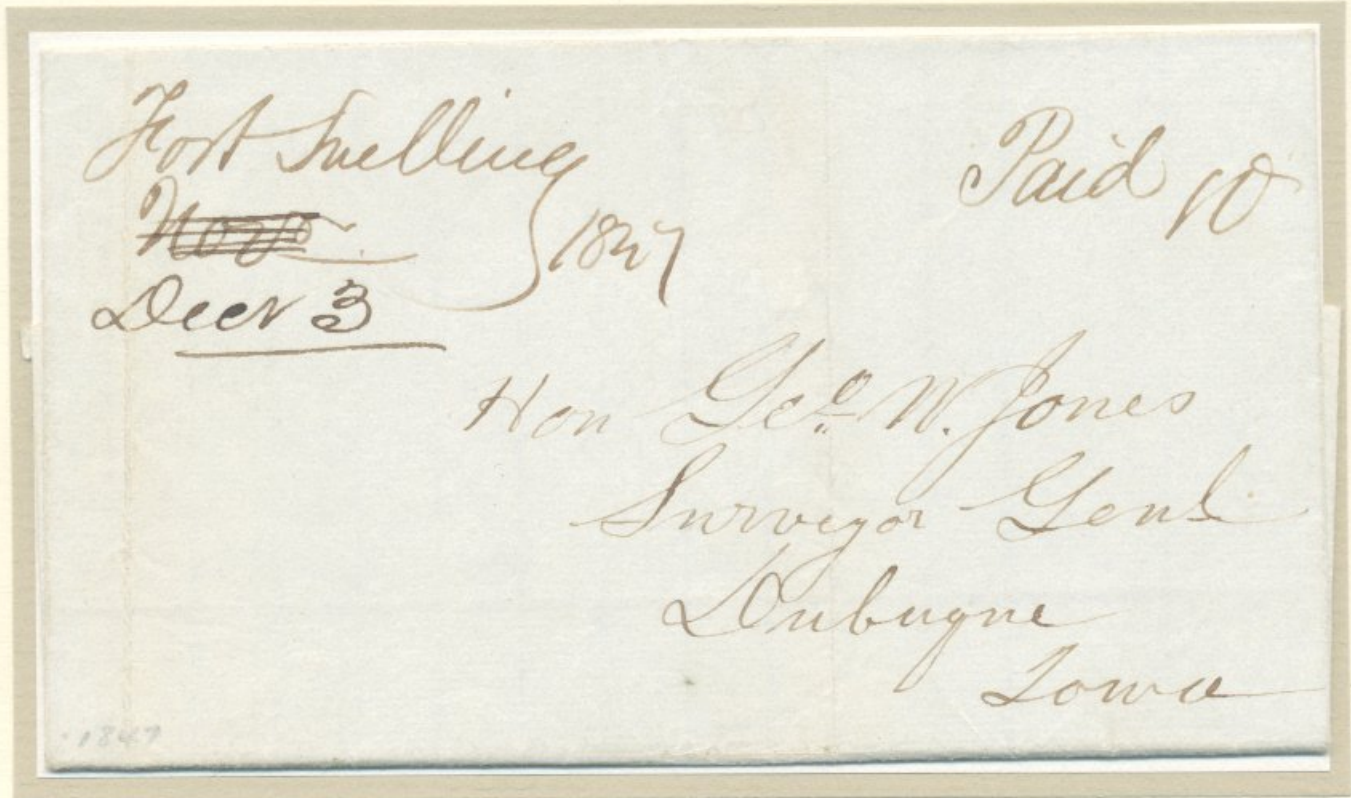 Fort Snelling
Novr
Decr 3
1847
Paid 10
Hon Geo. W. Jones
Surveyor Genl
Dubuque
Iowa
1847